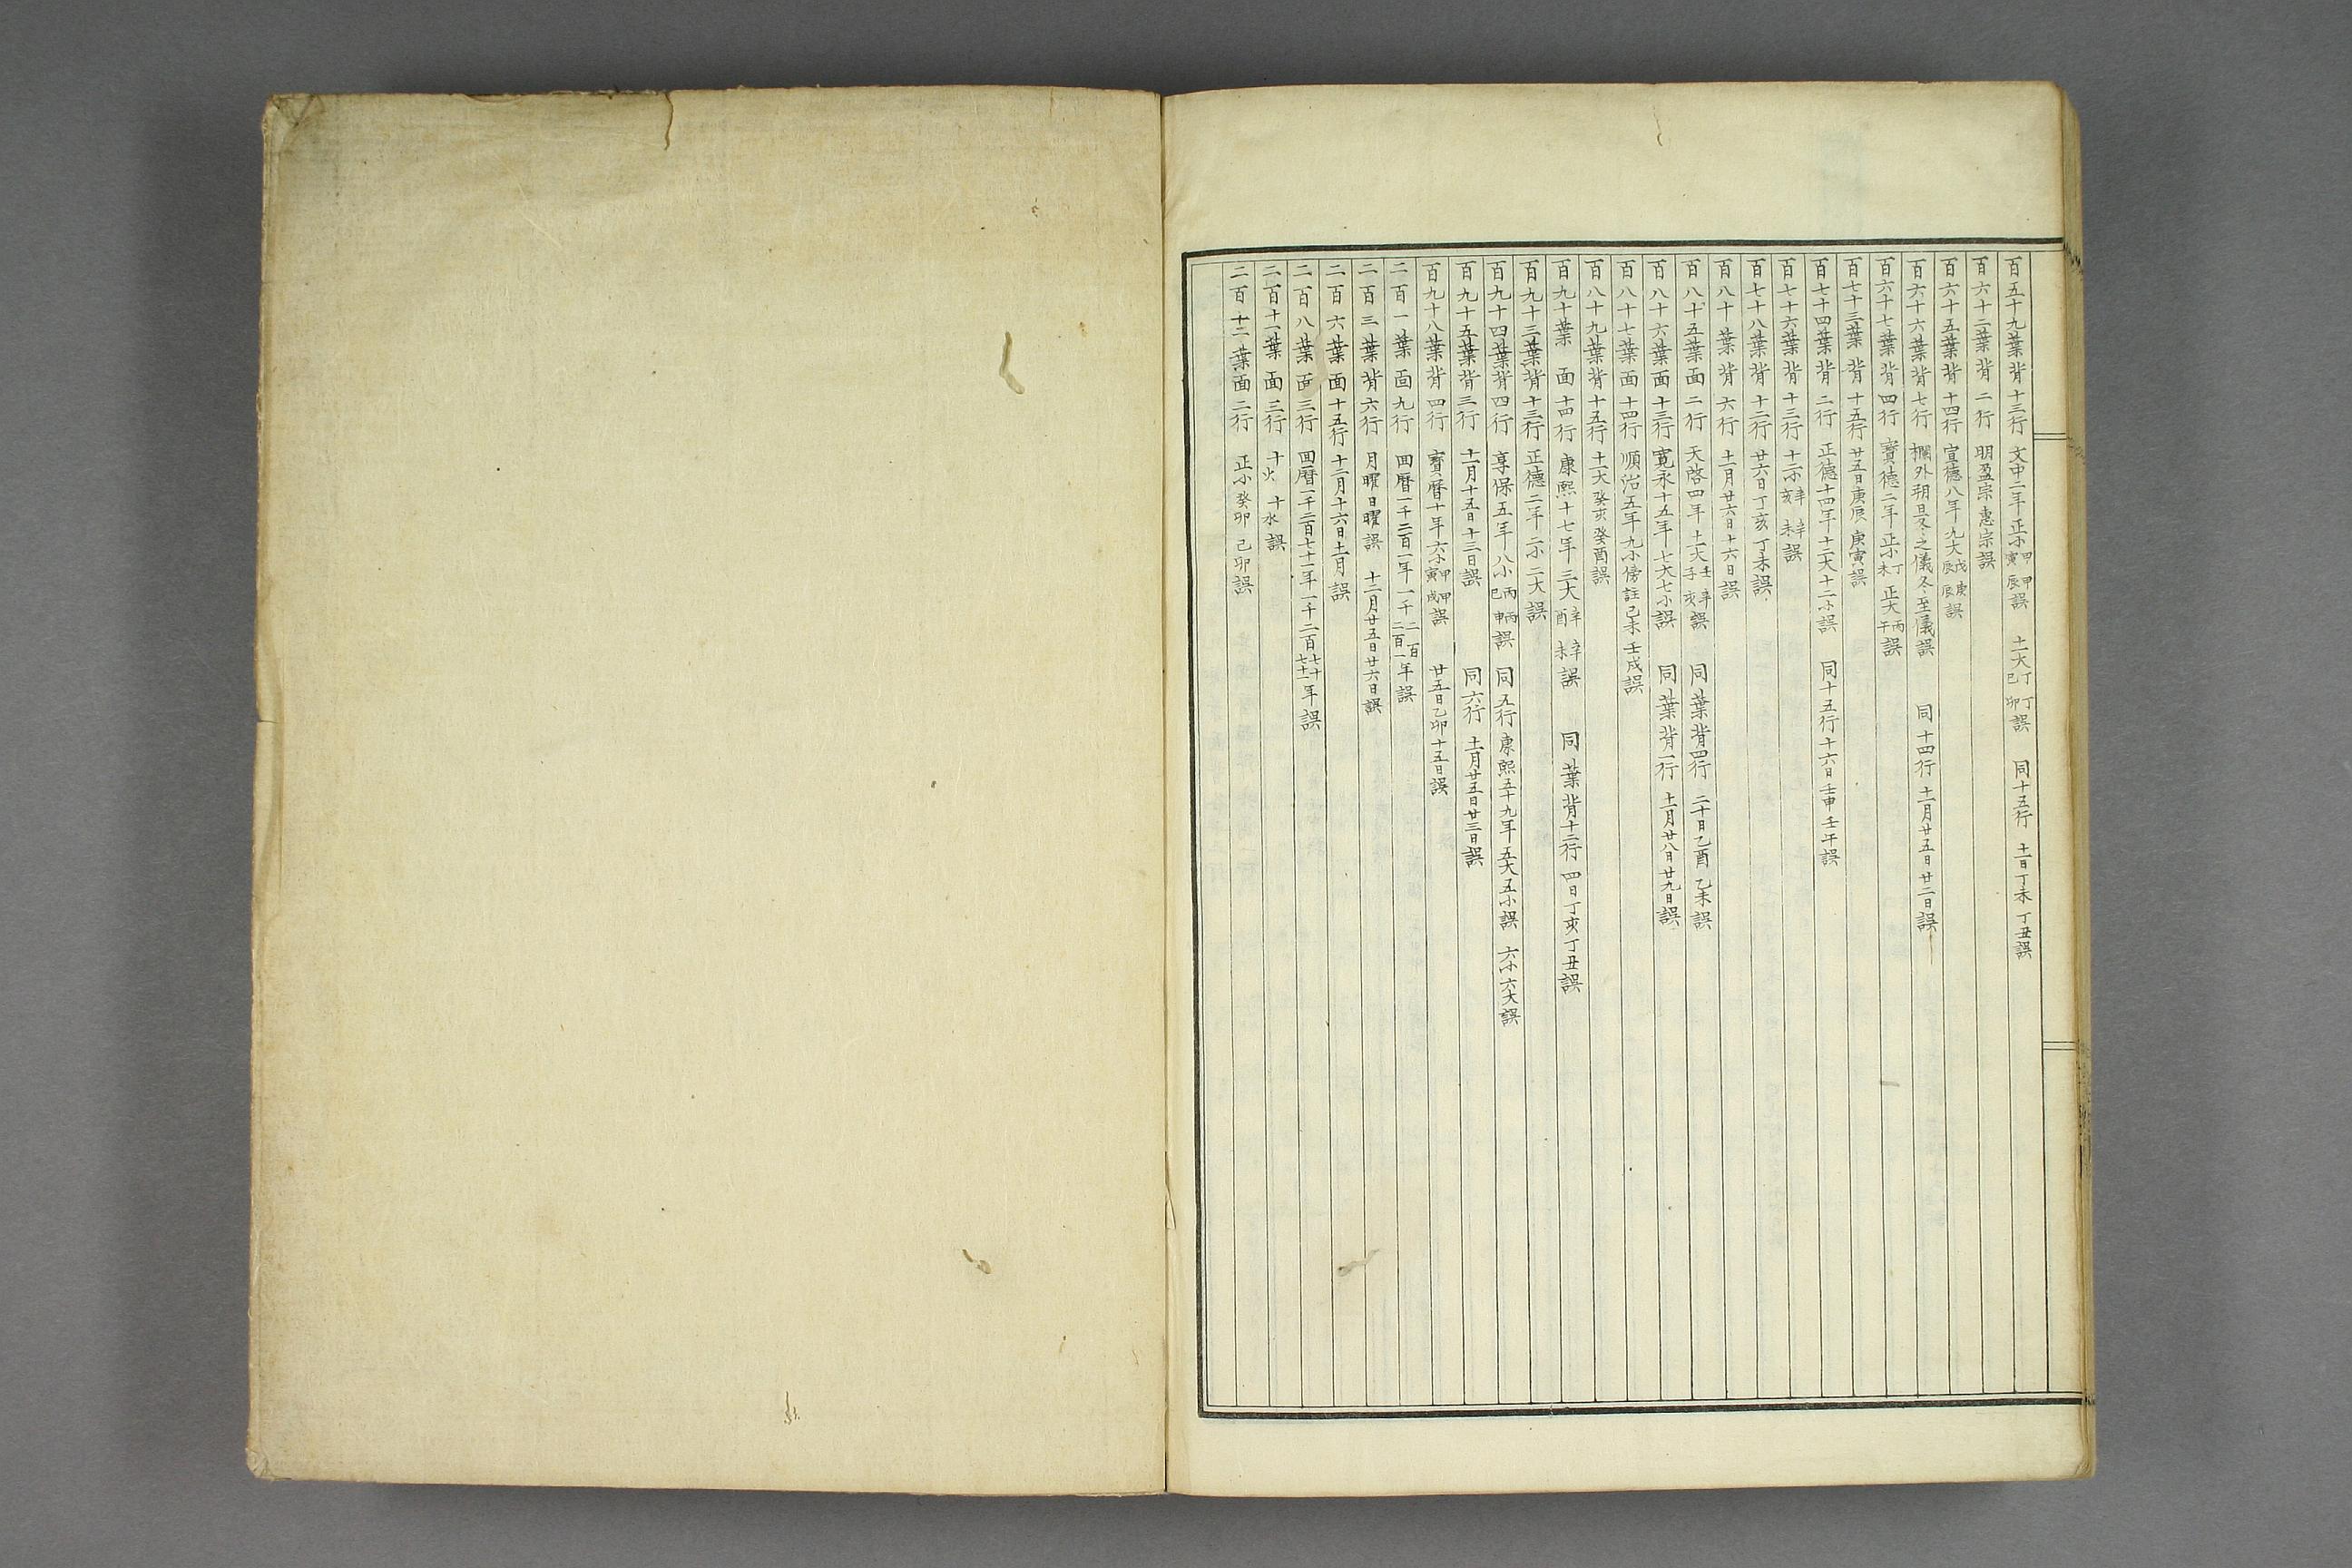 百五十九葉背十三行 文中二年正小甲寅甲辰誤 十一大丁巳丁卯誤 同十五行 十一日丁未丁丑誤
百六十二葉背二行 明盈宗惠宗誤
百六十五葉背十四行 宣德八年九大戊辰庚辰誤
百六十六葉背七行 欄外朔旦冬之儀冬至儀誤 同十四行 十一月廿五日廿二日誤
百六十七葉背四行 寶德二年正小丁未正大丙午誤
百七十三葉背十五行 廿五日庚辰庚寅誤
百七十四葉背二行 正德十四年十二大十二小誤 同十五行十六日壬申壬午誤
百七十六葉背十三行 十二小辛亥辛未誤
百七十八葉背十二行 廿六日丁亥丁未誤
百八十葉背六行 十一月廿六日十六日誤
百八十五葉面二行 天啓四年十一大壬子辛亥誤 同葉背四行 二十日乙酉乙未誤
百八十六葉面十三行 寛永十五年七大七小誤 同葉背一行 十一月廿八日廿九日誤
百八十七葉面十四行 順治五年九小傍註己未壬戌誤
百八十九葉背十五行 十一大癸亥癸酉誤
百九十葉面十四行 康熙十七年三大辛酉辛未誤 同葉背十二行 四日丁亥丁丑誤
百九十三葉背十三行 正德二年二小二大誤
百九十四葉背四行 享保五年八小丙巳丙申誤 同九行 康熙五十九年五大五小誤 六小六大誤
百九十五葉背三行 十一月十五日十三日誤 同六行 十一月廿五日廿三日誤
百九十八葉背四行 寶曆十年六小甲寅甲戌誤 廿五日乙卯十五日誤
二百一葉面九行 回曆一千二百一年一千二百二百一年誤
二百三葉背六行 月曜日曜誤 十二月廿五日廿六日誤
二百六葉面十五行 十二月十六日十一月誤
二百八葉面三行 回曆一千二百七十一年一千二百七十七十一年誤
二百十一葉面三行 十火十水誤
二百十二葉面二行 正小癸卯己卯誤